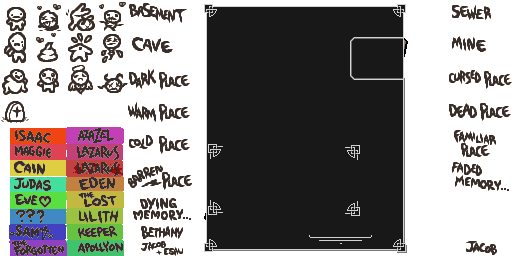 BASEMENT
CAVE
DARK PLACE
WARM PLACE
COLD PLACE
BARREN PLACE
DYING
MEMORY...
BETHANY
JACOB
+ ESAU
ISAAC
MAGGIE
CAIN
JUDAS
EVE
???
SAMSON
THE FORGOTTEN
AZAZEL
LAZARUS
LAZARUS
EDEN
THE LOST
LILITH
KEEPER
APOLLYON
SEWER
MINE
CURSED PLACE
DEAD PLACE
FAMILIAR
PLACE
FADED
MEMORY...
JACOB